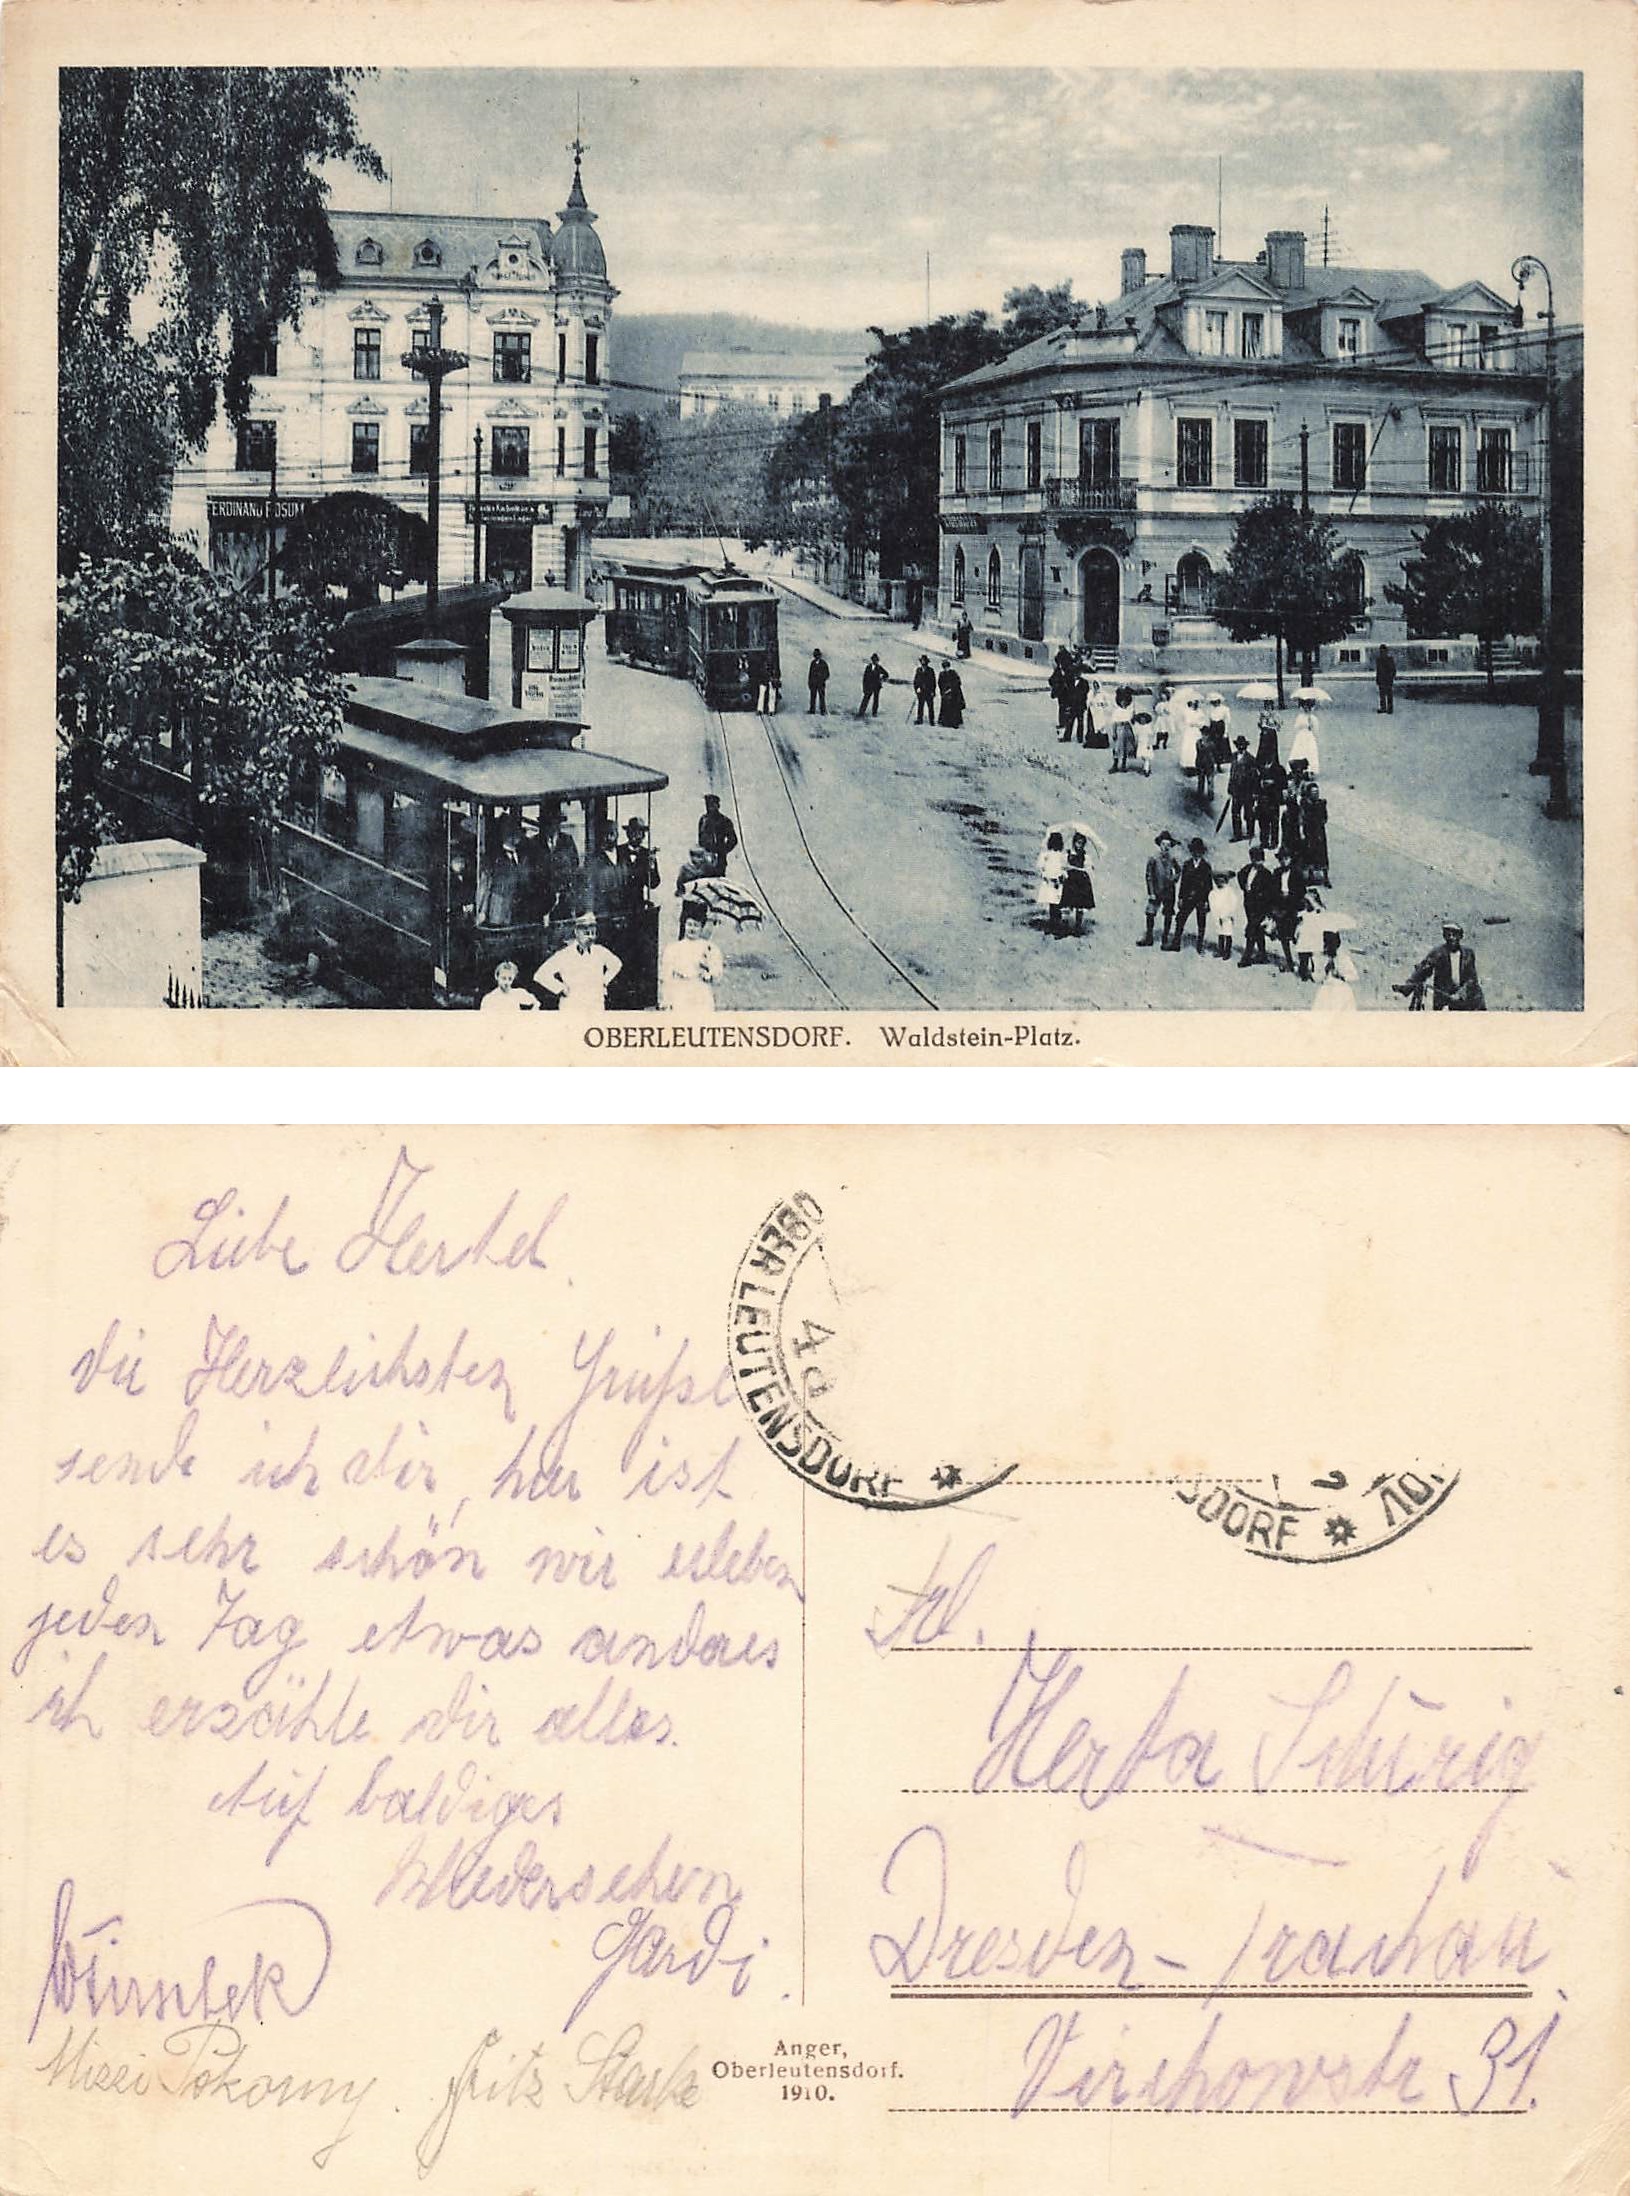 FERDINAND
OBERLEUTENSDORF. Waldstein-Platz.
Liebe Hertel.
die Herzlichsten Grüße
sende ich dir, hier ist
es sehr schön wir erleben
jeden Tag etwas andares
ich erzähle dir alles.
Auf baldiges
Wiedersehen
Gardi.
Mizzi Pokorny. Fritz Starke
OBERLEUTENSDORF
SDORF
Anger,
Oberleutensdorf.
1910.
Frl.
Herta Schurig
Dresden-Trachau
Virchowstr 31.